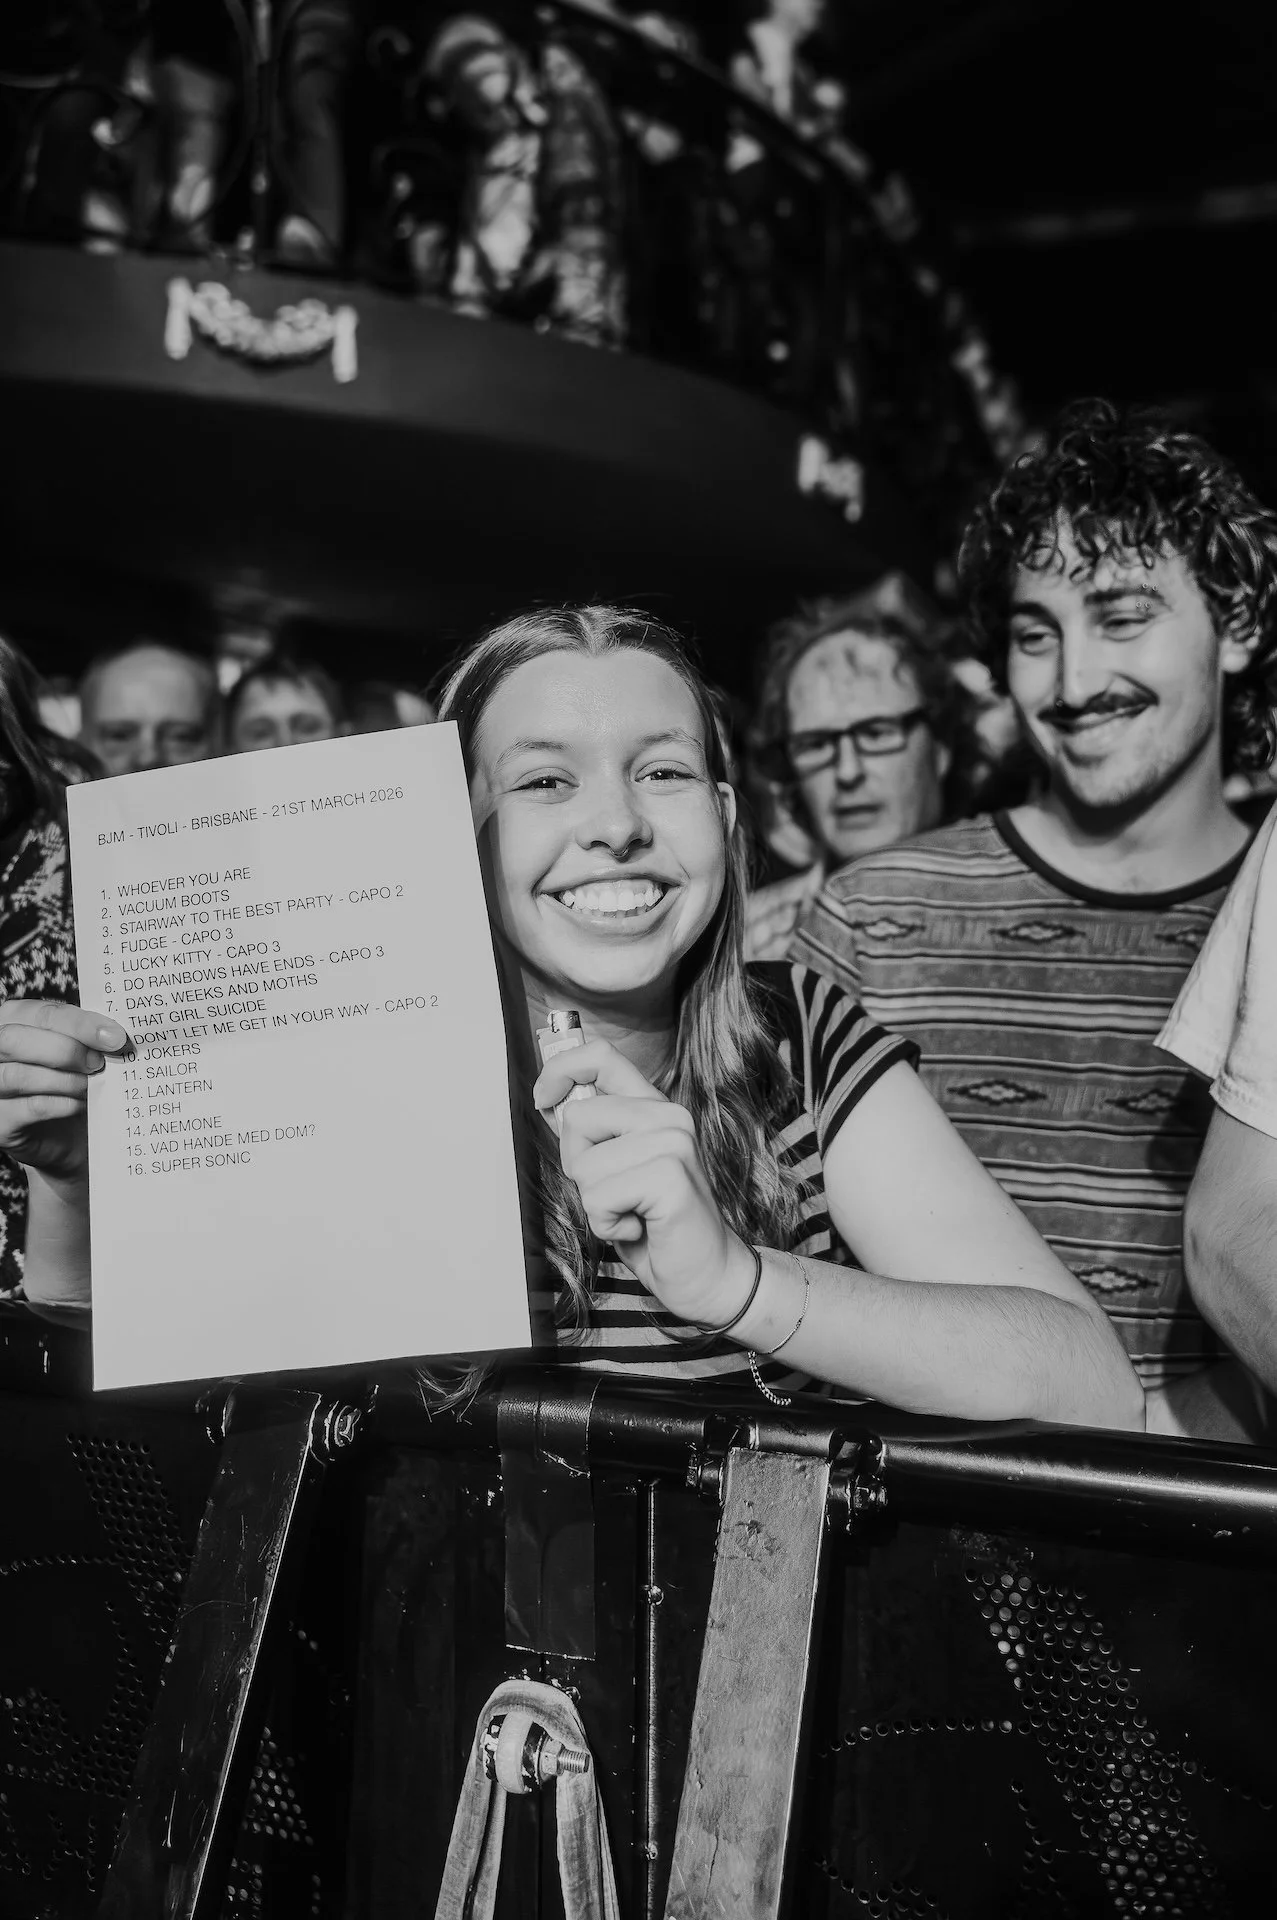 BJM - TIVOLI - BRISBANE - 21ST MARCH 2026
1. WHOEVER YOU ARE
2. VACUUM BOOTS
3. STAIRWAY TO THE BEST PARTY - CAPO 2
4. FUDGE - CAPO 3
5. LUCKY KITTY - CAPO 3
6. DO RAINBOWS HAVE ENDS - CAPO 3
7. DAYS, WEEKS AND MOTHS
THAT GIRL SUICIDE
DON'T LET ME GET IN YOUR WAY - CAPO 2
10. JOKERS
11. SAILOR
12. LANTERN
13. PISH
14. ANEMONE
15. VAD HANDE MED DOM?
16. SUPER SONIC